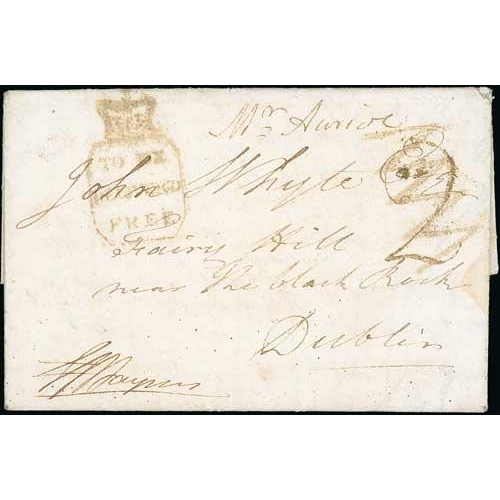 Mr. Auriol
TO BE
FREE
John Whyte
2
Fairy Hill
near the black Rock
Dublin